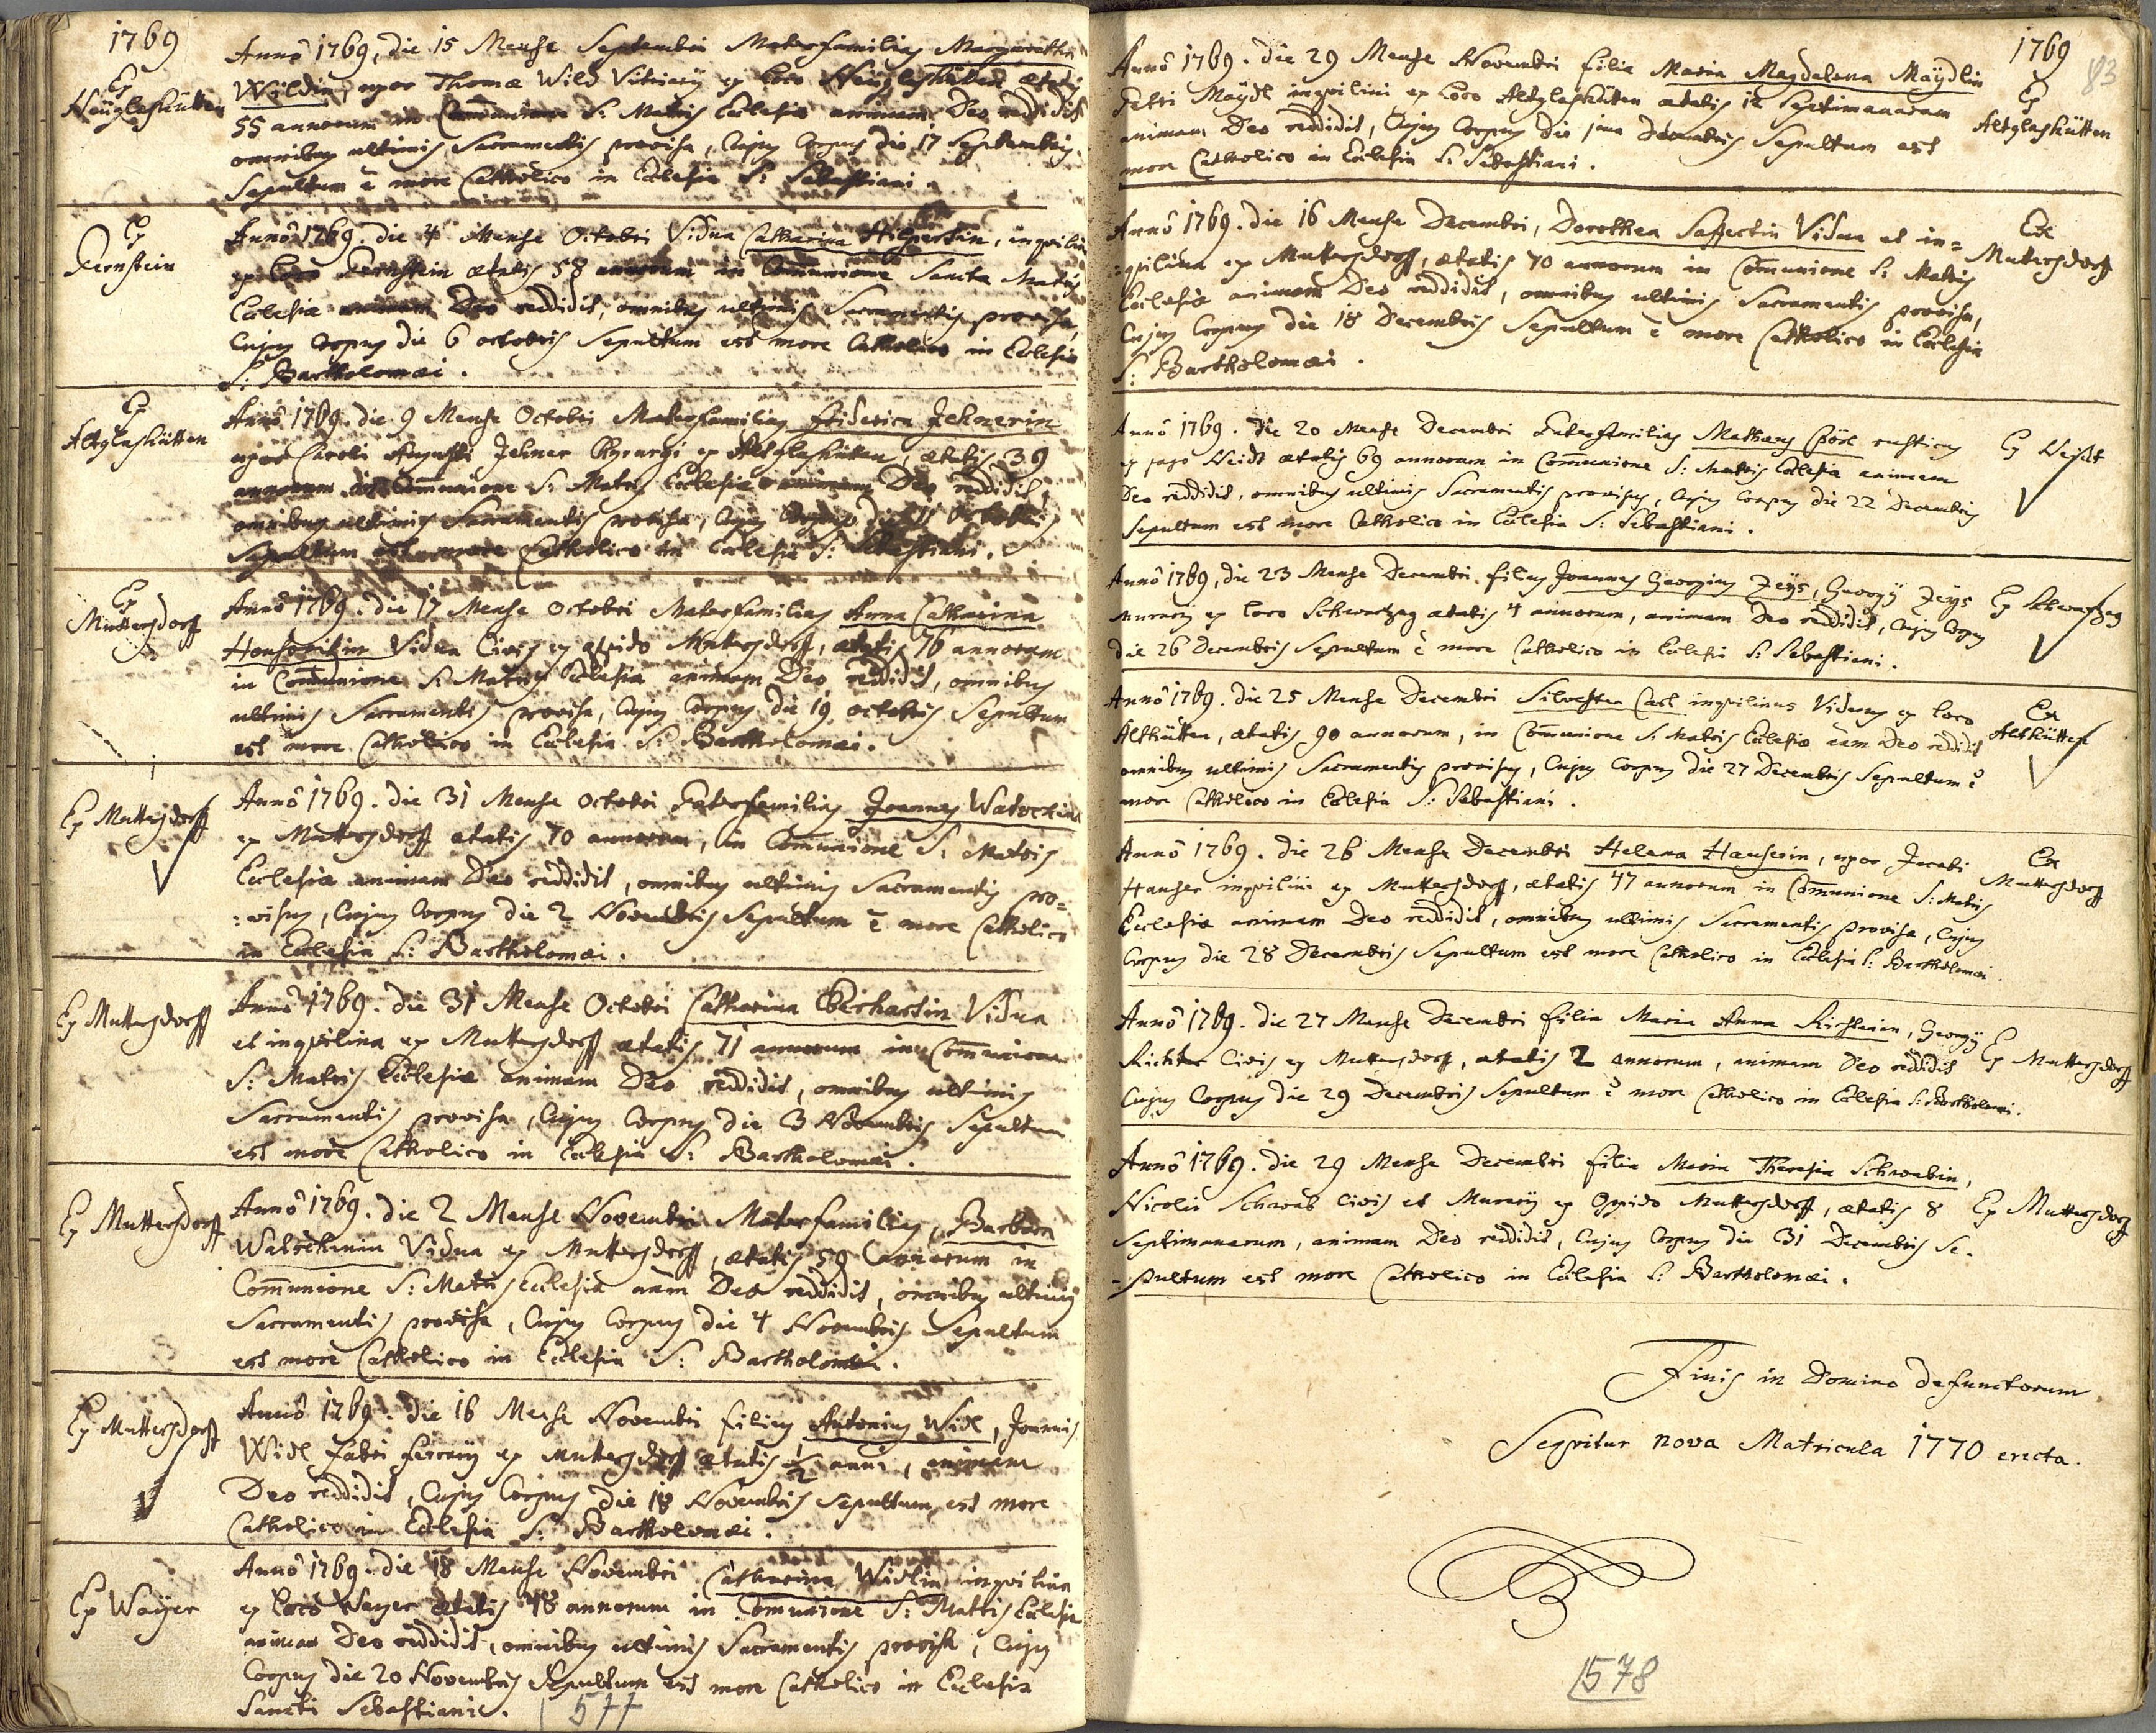 1769
Ex
Neüglashütten
Anno 1769, die 15 Mense Septembri Materfamilias Margaretha
Wildin, uxor Thomæ Wild Vitriarij ex loco Neüglashütten ætatis
55 annorum in Communione S: Matris Ecclesiæ animam Deo reddidit
omnibus ultimis Sacramentis provisa, Cujus Corpus die 17 Septembris
Sepultum ē more Catholico in Ecclesia S: Sebastiani.
Ex
Fernstein
Anno 1769. die 4 Mense Octobri Vidua Catharina Hilpertin, inqvilina
ex loco Fernstein ætatis 58 annorum in Communione Sanctæ Matris
Ecclesiæ animam Deo reddidit, omnibus ultimis Sacramentis provisa,
Cujus Corpus die 6 octobris Sepultum est more Catholico in Ecclesia
S: Bartholomæi.
Ex
Altglashütten
Anno 1769. die 9 Mense Octobri Materfamilias Friderica Jehnerin
uxor Caroli Augusti Jehner Chyrurgi ex Altglashütten, ætatis 39
annorum in Com̄unione S: Matris Ecclesiæ animam Deo reddidit,
omnibus ultimis Sacramentis provisa, Cujus Corpus die 11 octobris
Sepultum est more Catholico in Ecclesia S: Sebastiani.
Ex
Muttersdorff
Anno 1769. die 17 Mense Octobri Materfamilias Anna Catharina
Vidua Civis ex opido Muttersdorff, ætatis 76 annorum
in Com̄unione S: Matris Ecclesiæ animam Deo reddidit, omnibus
ultimis Sacramentis provisa, Cujus Corpus die 19 octobris Sepultum
est more Catholico in Ecclesia S: Bartholomæi.
Ex Muttersdorff
Anno 1769. die 31 Mense Octobri Paterfamilias Joannes
ex Muttersdorff ætatis 70 annorum, in Com̄unione S: Matris
Ecclesiæ animam Deo reddidit, omnibus ultimis Sacramentis pro=
:visus, Cujus Corpus die 2 Novembris Sepultum ē more Catholico
in Ecclesia S: Bartholomæi.
Ex Muttersdorff
Anno 1769. die 31 Mense Octobri Catharina Eberhartin Vidua
et inqvilina ex Muttersdorff ætatis 71 annorum in Com̄unione
S: Matris Ecclesiæ animam Deo reddidit, omnibus ultimis
Sacramentis provisa, Cujus Corpus die 3 Novembris Sepultum
est more Catholico in Ecclesia S: Bartholomæi.
Ex Muttersdorff
Anno 1769. die 2 Mense Novembri Materfamilias, Barbara
Vidua ex Muttersdorff, ætatis 59 annorum in
Com̄unione S: Matris Ecclesiæ aām Deo reddidit, omnibus ultimis
Sacramentis provisa, Cujus Corpus die 4 Novembris Sepultum
est more Catholico in Ecclesia S: Bartholomæi.
Ex Muttersdorff
Anno 1769. die 16 Mense Novembri filius Antonius Widl, Joannis
Widl fabri ferrarij ex Muttersdorff ætatis 1/2 anni, animam
Deo reddidit, Cujus Corpus die 18 Novembris Sepultum est more
Catholico in Ecclesia S: Bartholomæi.
Ex Wayer
Anno 1769. die 18 Mense Novembri Catharina Widlin inqvilina
ex loco Wayer ætatis 48 annorum in Com̄unione S: Matris Ecclesiæ
animam Deo reddidit, omnibus ultimis Sacramentis provisa, Cujus
Corpus die 20 Novembris Sepultum est more Catholico in Ecclesia
Sancti Sebastiani.
577
1769
83
Ex
Altglashütten
Anno 1769. die 29 Mense Novembri filia Maria Magdalena Maÿdlin
Petri Maÿdl inqvilini ex loco Altglashütten ætatis 12 Septimanarum
animam Deo reddidit, Cujus Corpus die 1ma Decembris Sepultum est
more Catholico in Ecclesia S: Sebastiani.
Ex
Mutersdorff
Anno 1769. die 16 Mense Decembri, Dorothea Vidua et in=
=qvilina ex Muttersdorff, ætatis 70 annorum in Com̄unione S: Matris
Ecclesiæ animam Deo reddidit, omnibus ultimis Sacramentis provisa,
Cujus Corpus die 18 Decembris Sepultum ē more Catholico in Ecclesia
S: Bartholomæi.
Ex
Anno 1769. die 20 Mense Decembri Paterfamilias Mathæus rusticus
ex pago ætatis 69 annorum in Com̄unione S: Matris Ecclesiæ animam
Deo reddidit, omnibus ultimis Sacramentis provisus, Cujus Corpus die 22 Decembris
Sepultum est more Catholico in Ecclesia S: Sebastiani.
Ex Schwartzag
Anno 1769, die 23 Mense Decembri, filius Joannes Georgius Zeÿs, Georgÿ Zeÿs
murarij ex loco Schwartzag ætatis 4 annorum, animam Deo reddidit, Cujus Corpus
die 26 Decembris Sepultum ē more Catholico in Ecclesia S: Sebastiani.
Ex
Althütten
Anno 1769. die 25 Mense Decembri Silvester inqvilinus Viduus ex loco
Althütten, ætatis 90 annorum, in Com̄unione S: Matris Ecclesiæ āam Deo reddidit
omnibus ultimis Sacramentis provisus, Cujus Corpus die 27 Decembris Sepultum ē
more Catholico in Ecclesia S: Sebastiani.
Ex
Muttersdorff
Anno 1769. die 26 Mense Decembri Helena Hauserin, uxor Jacobi
Hauser inqvilini ex Muttersdorff, ætatis 47 annorum in Com̄unione S: Matris
Ecclesiæ animam Deo reddidit, omnibus ultimis Sacramentis provisa, Cujus
Corpus die 28 Decembris Sepultum est more Catholico in Ecclesia S: Bartholomæi.
Ex Muttersdorff
Anno 1769. die 27 Mense Decembri filia Maria Anna Richterin, Georgÿ
Richter Civis ex Muttersdorff, ætatis 2 annorum, animam Deo reddidit
Cujus Corpus die 29 Decembris Sepultum ē more Catholico in Ecclesia S: Bartholomæi.
Ex Muttersdorff
Anno 1769. die 29 Mense Decembri filia Maria Theresia Schwabin,
Nicolai Schwab Civis et Murarij ex Oppido Muttersdorff, ætatis 8
Septimanarum, animam Deo reddidit, Cujus Corpus die 31 Decembris Se-
-pultum est more Catholico in Ecclesia S: Bartholomæi.
Finis in Domino defunctorum.
Seqvitur nova Matricula 1770 erecta.
578